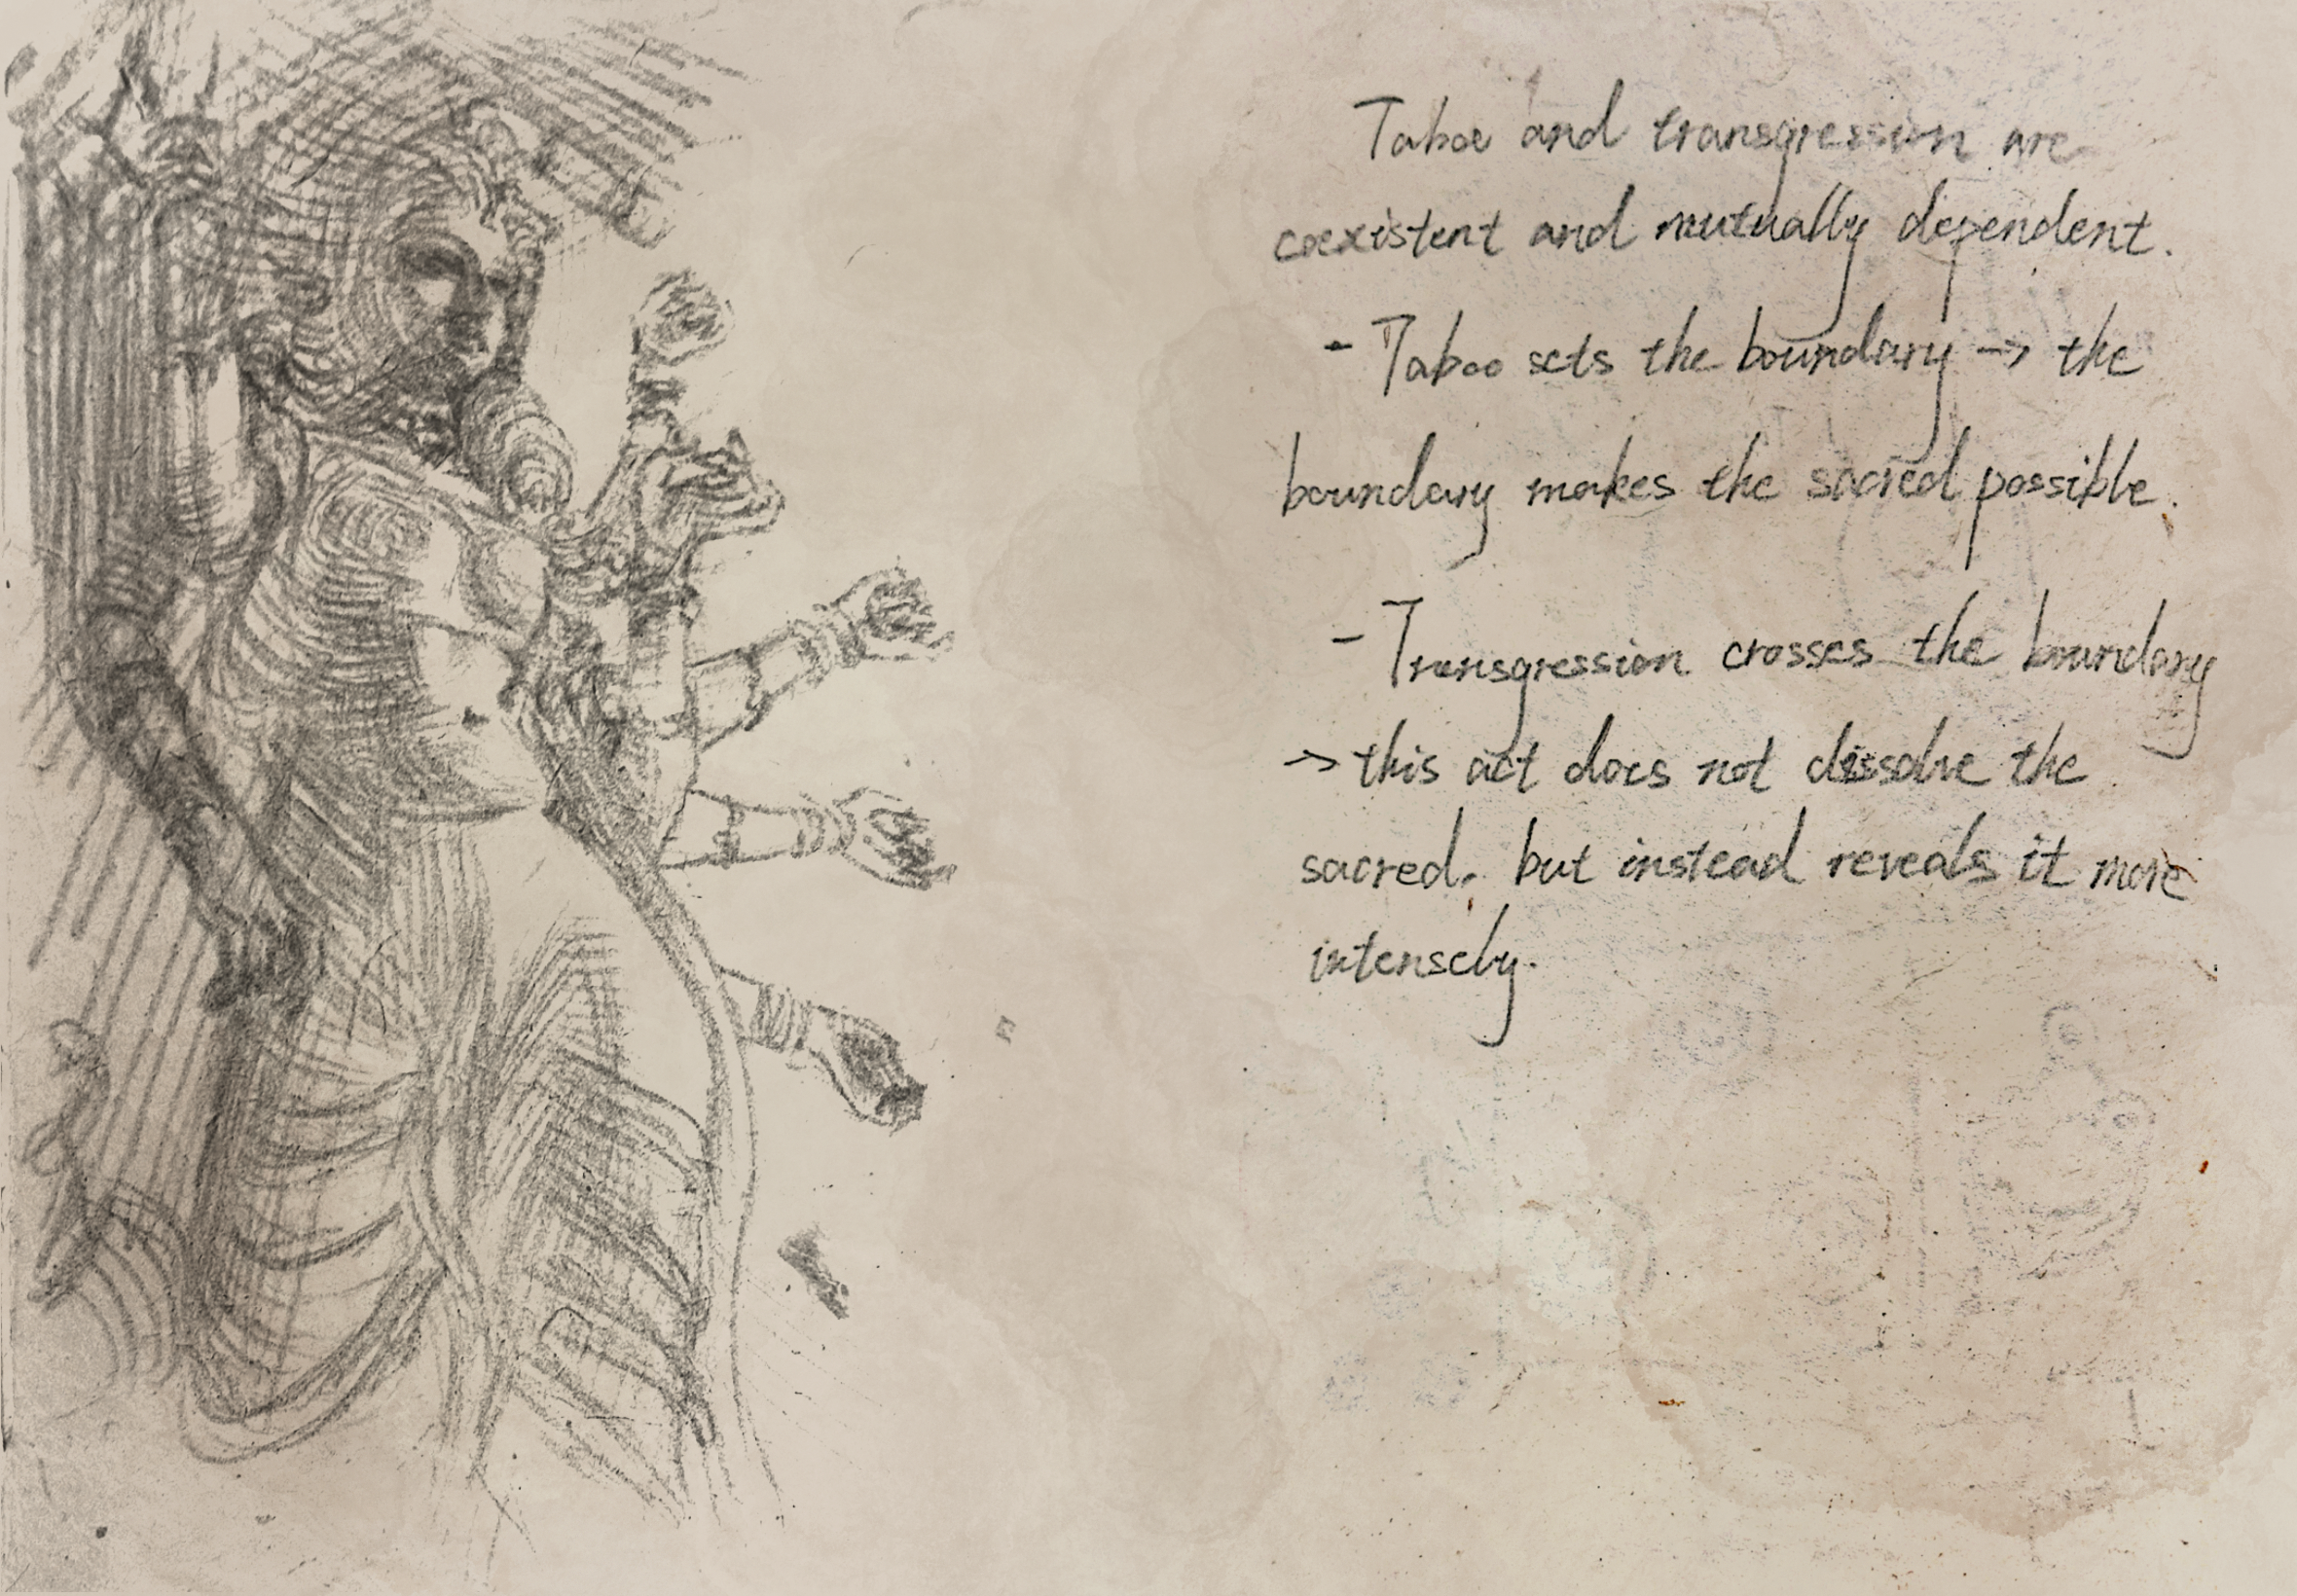 Taboo and transgression are
coexistent and mutually dependent.
- Taboo sets the boundary → the
boundary makes the sacred possible.
- Transgression crosses the boundary
→ this act does not dissolve the
sacred, but instead reveals it more
intensely.